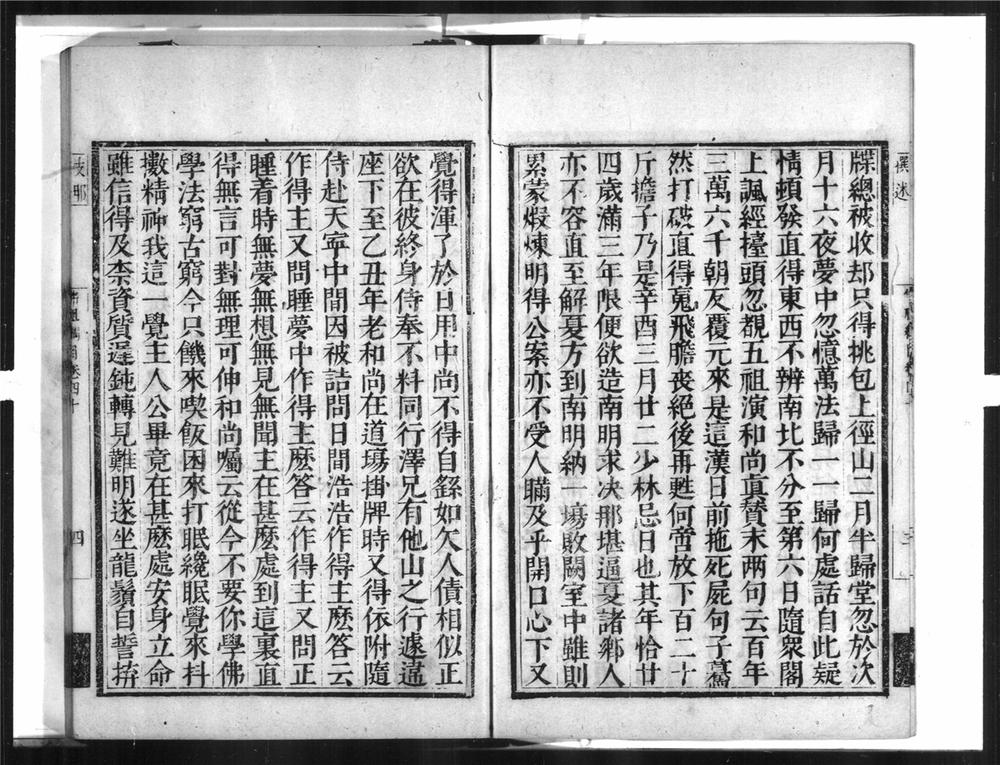 牒總被收却只得挑包上徑山二月半歸堂忽於次
月十六夜夢中忽憶萬法歸一一歸何處話自此疑
情頓發直得東西不辨南北不分至第六日隨衆閣
上諷經擡頭忽覩五祖演和尚眞賛末两句云百年
三萬六千朝反覆元來是這漢日前拖死屍句子驀
然打破直得䰟飛膽喪絕後再甦何啻放下百二十
斤擔子乃是辛酉三月廿二少林忌日也其年恰廿
四歲滿三年限便欲造南明求决那堪逼夏諸鄉人
亦不容直至解夏方到南明納一塲敗闕室中雖則
累蒙煆煉明得公案亦不受人瞞及乎開口心下又
覺得渾了於日用中尚不得自繇如欠人債相似正
欲在彼終身侍奉不料同行澤兄有他山之行遽違
座下至乙丑年老和尚在道塲掛牌時又得依附隨
侍赴天寧中間因被詰問日間浩浩作得主麽答云
作得主又問睡夢中作得主麽答云作得主又問正
睡着時無夢無想無見無聞主在甚麽處到這裏直
得無言可對無理可伸和尚囑云從今不要你學佛
學法窮古窮今只饑來喫飯困來打眠纔眠覺來抖
擻精神我這一覺主人公畢竟在甚麽處安身立命
雖信得及柰資質遲鈍轉見難明遂坐龍鬚自誓拚
四